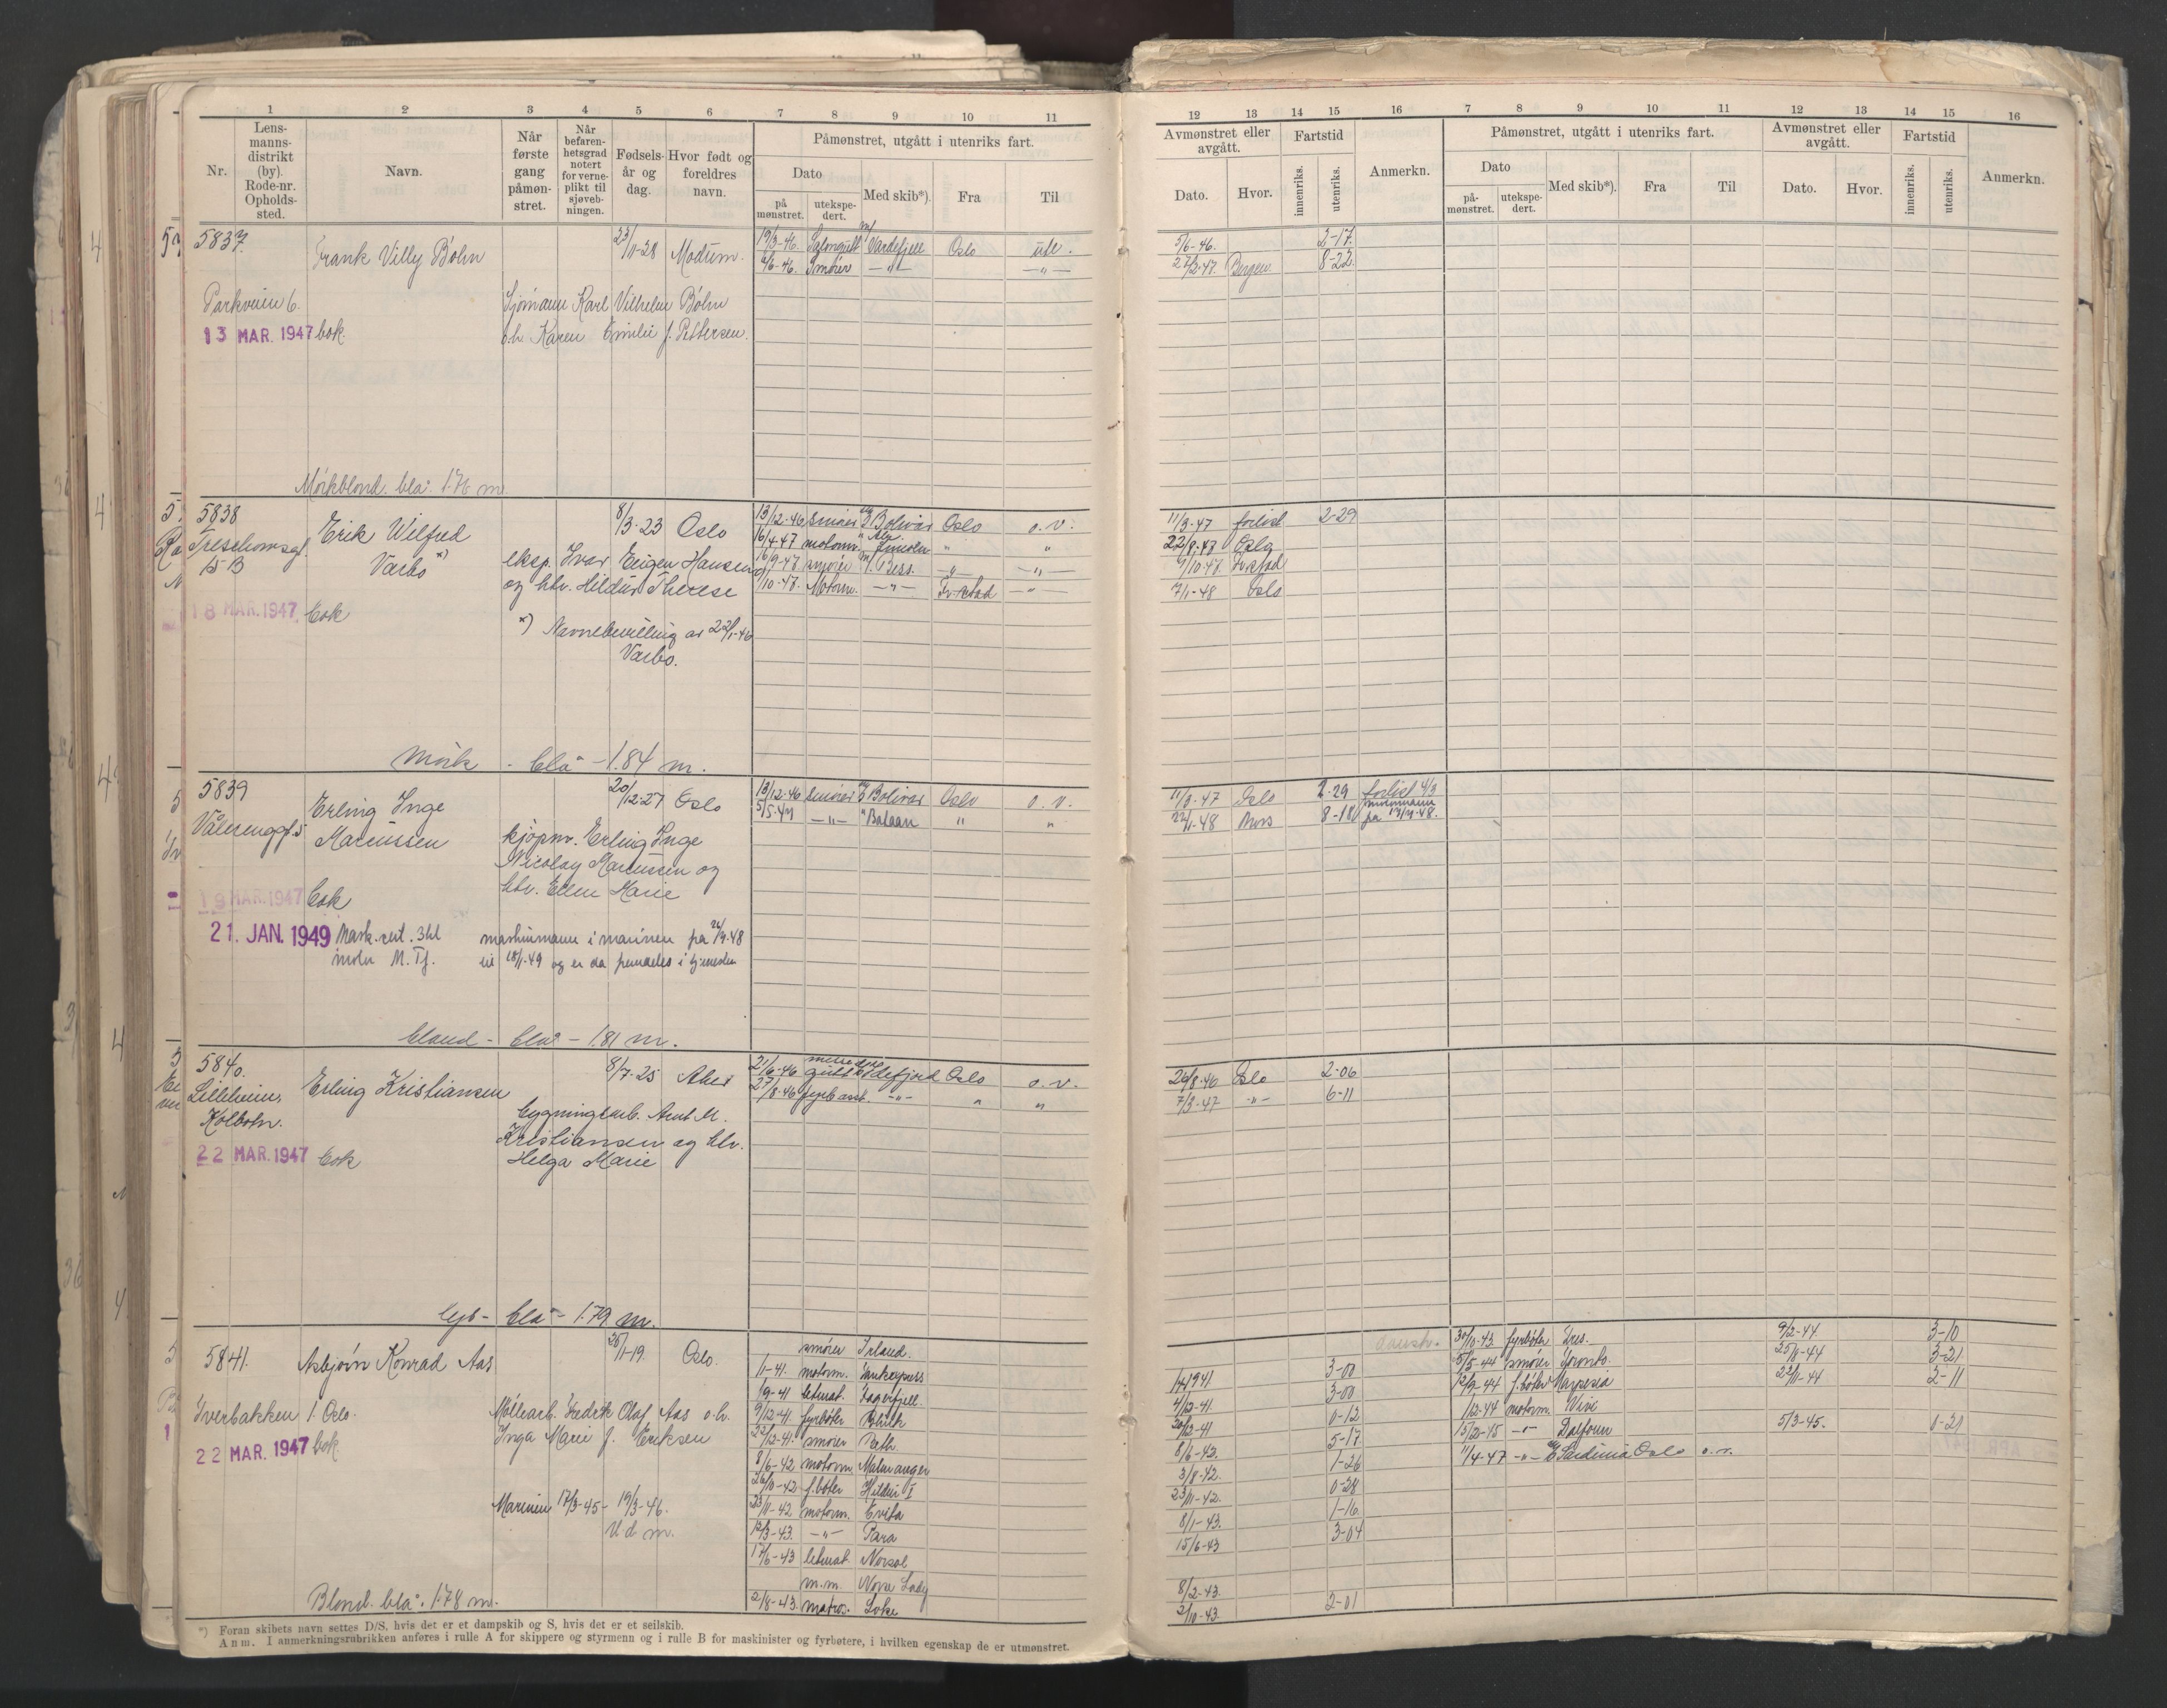 1 2 3 4 5 6 7 8 9 10 11
Nr.
Lens-
manns-
distrikt
(by).
Rode-nr.
Opholds-
sted.
Navn.
Når
første
gang
påmøn-
stret.
Når
befaren-
hetsgrad
notert
for verne-
plikt til
sjøveb-
ningen.
Fødsels-
år og
dag.
Hvor født og
foreldres
navn.
Påmønstret, utgått i utenriks fart.
Dato
på
mønstret.
utekspe-
dert.
Med skib*).
Fra
Til
12 13 14 15 16 7 8 9 10 11 12 13 14 15 16
Avmønstret eller
avgått.
Dato.
Hvor.
Fartstid
innenriks.
utenriks.
Anmerkn.
Påmønstret, utgått i utenriks fart.
Dato
på-
mønstret.
utekspe-
dert.
Med skib*).
Fra
Til
Avmønstret eller
avgått.
Dato.
Hvor.
Fartstid
innenriks.
utenriks.
Anmerkn.
5837. Frank Villy Böhn 23/11-28 Modum.
19/3-46. Salongutt m/ Vardefjell Oslo utl. 5/6-46. 2-17.
6/6-46. Smører —"— —"— 27/2-47. Bergen 8-22.
Parkveien 6. Sjømann Karl Vilhelm Bøhn
13 MAR. 1947 bok. o.h. Karen Emilie f. Pettersen.
Mörkblond. blå. 1.76 m
5838 Erik Wilfred 8/3-23 Oslo
Treschowsgt. 15 B Varbo *)
eksp. Ivar Eugen Hansen
og htr. Hildur Therese
13/12-46 smører m/s Bolivar Oslo o.v. 11/3-47 forlist 2-29
16/4-47 motorm. " Abr. Lincoln " " 22/8-47 Oslo
16/9-47 smører m/ Bess. —"— —"— 9/10-47
/10-47. Motorm. —"— Fr.stad —"— 7/1-48 Oslo
18 MAR. 1947 bok
*) Navnebevilling av 22/1-46
Varbo.
Mörk - blå - 1.84 m.
5839 Erling Inge 20/12-27 Oslo
Vålerenggt. 5 Marcussen
kjøpm. Erling Inge
Nicolay Marcussen og
htr. Ellen Marie
13/12-46 smører m/s Bolivar Oslo o.v. 11/3-47 Oslo 2-29 forlist 4/3
5/5-47 —"— " Balaan " " 22/1-48 Mors 8-18
19 MAR. 1947 bok
21. JAN. 1949 Mask.sert. 3kl maskinmann i marinen fra 26/9-48
motor M. Tj. til 18/1-49 og er da fremdeles i tjenesten
blond - blå - 1.81 m.
5840. Erling Kristiansen 8/7-25 Aker
Lilleheim, Kolbotn.
bygningsarb. Arnt M.
Kristiansen og htr.
Helga Marie
21/6-46 gutt Idefjord Oslo o.v. 26/8-46 Oslo 2-06
27/8-46 fyrb.asst. —"— " " 7/3-47 —"— 6-11
22 MAR. 1947 bok
lys - blå - 1.79 m.
5841. Asbjørn Konrad Aas 26/1-19. Oslo.
Iverbakken 1. Oslo. Møllearb. Fredrik Olaf Aas o.h.
22 MAR. 1947 bok. Inga Marie f. Eriksen
Marinen 17/3-45 - 19/3-46.
Ud m.
Blond. blå. 1.78 m.
smører Irland.
1/1-41. motorm. 14/9 41 3-00
19-41 letmat. Lagerfjell. 4/12-41. 3-00
9/12-41. fyrbøter 20/12-41 0-12
22/12-41. smører 8/6-42. 5-17.
8/6-42 motorm. Malmanger 3/8-42. 1-26
26/10-42 f.bøter Hildur I 23/11-42. 0-28
23/11-42 motorm. Evita 8/1-43. 1-16.
12/3-43. —"— Para 15/6-43 3-04
17/6-43 letmat Norsol
m.m. Nova Lady 8/2-43.
2/8-43. matros. Loke 2/10-43. 2-01
30/10-43. fyrbøter 9/2-44. 3-10
5/5-44 smører Toronto. 25/8-44 3-21
12/9-44 f.bøter Marpesia 22/11-44 2-11
1/12-44 motorm. Vivi
15/2-45 —"— Dalfonn 5/3-45. 0-21
11/4-47 —"— m/s Sardinia Oslo o.v.
*) Foran skibets navn settes D/S, hvis det er et dampskib og S, hvis det er et seilskib.
Anm. I anmerkningsrubrikken anføres i rulle A for skippere og styrmenn og i rulle B for maskinister og fyrbøtere, i hvilken egenskap de er utmønstret.